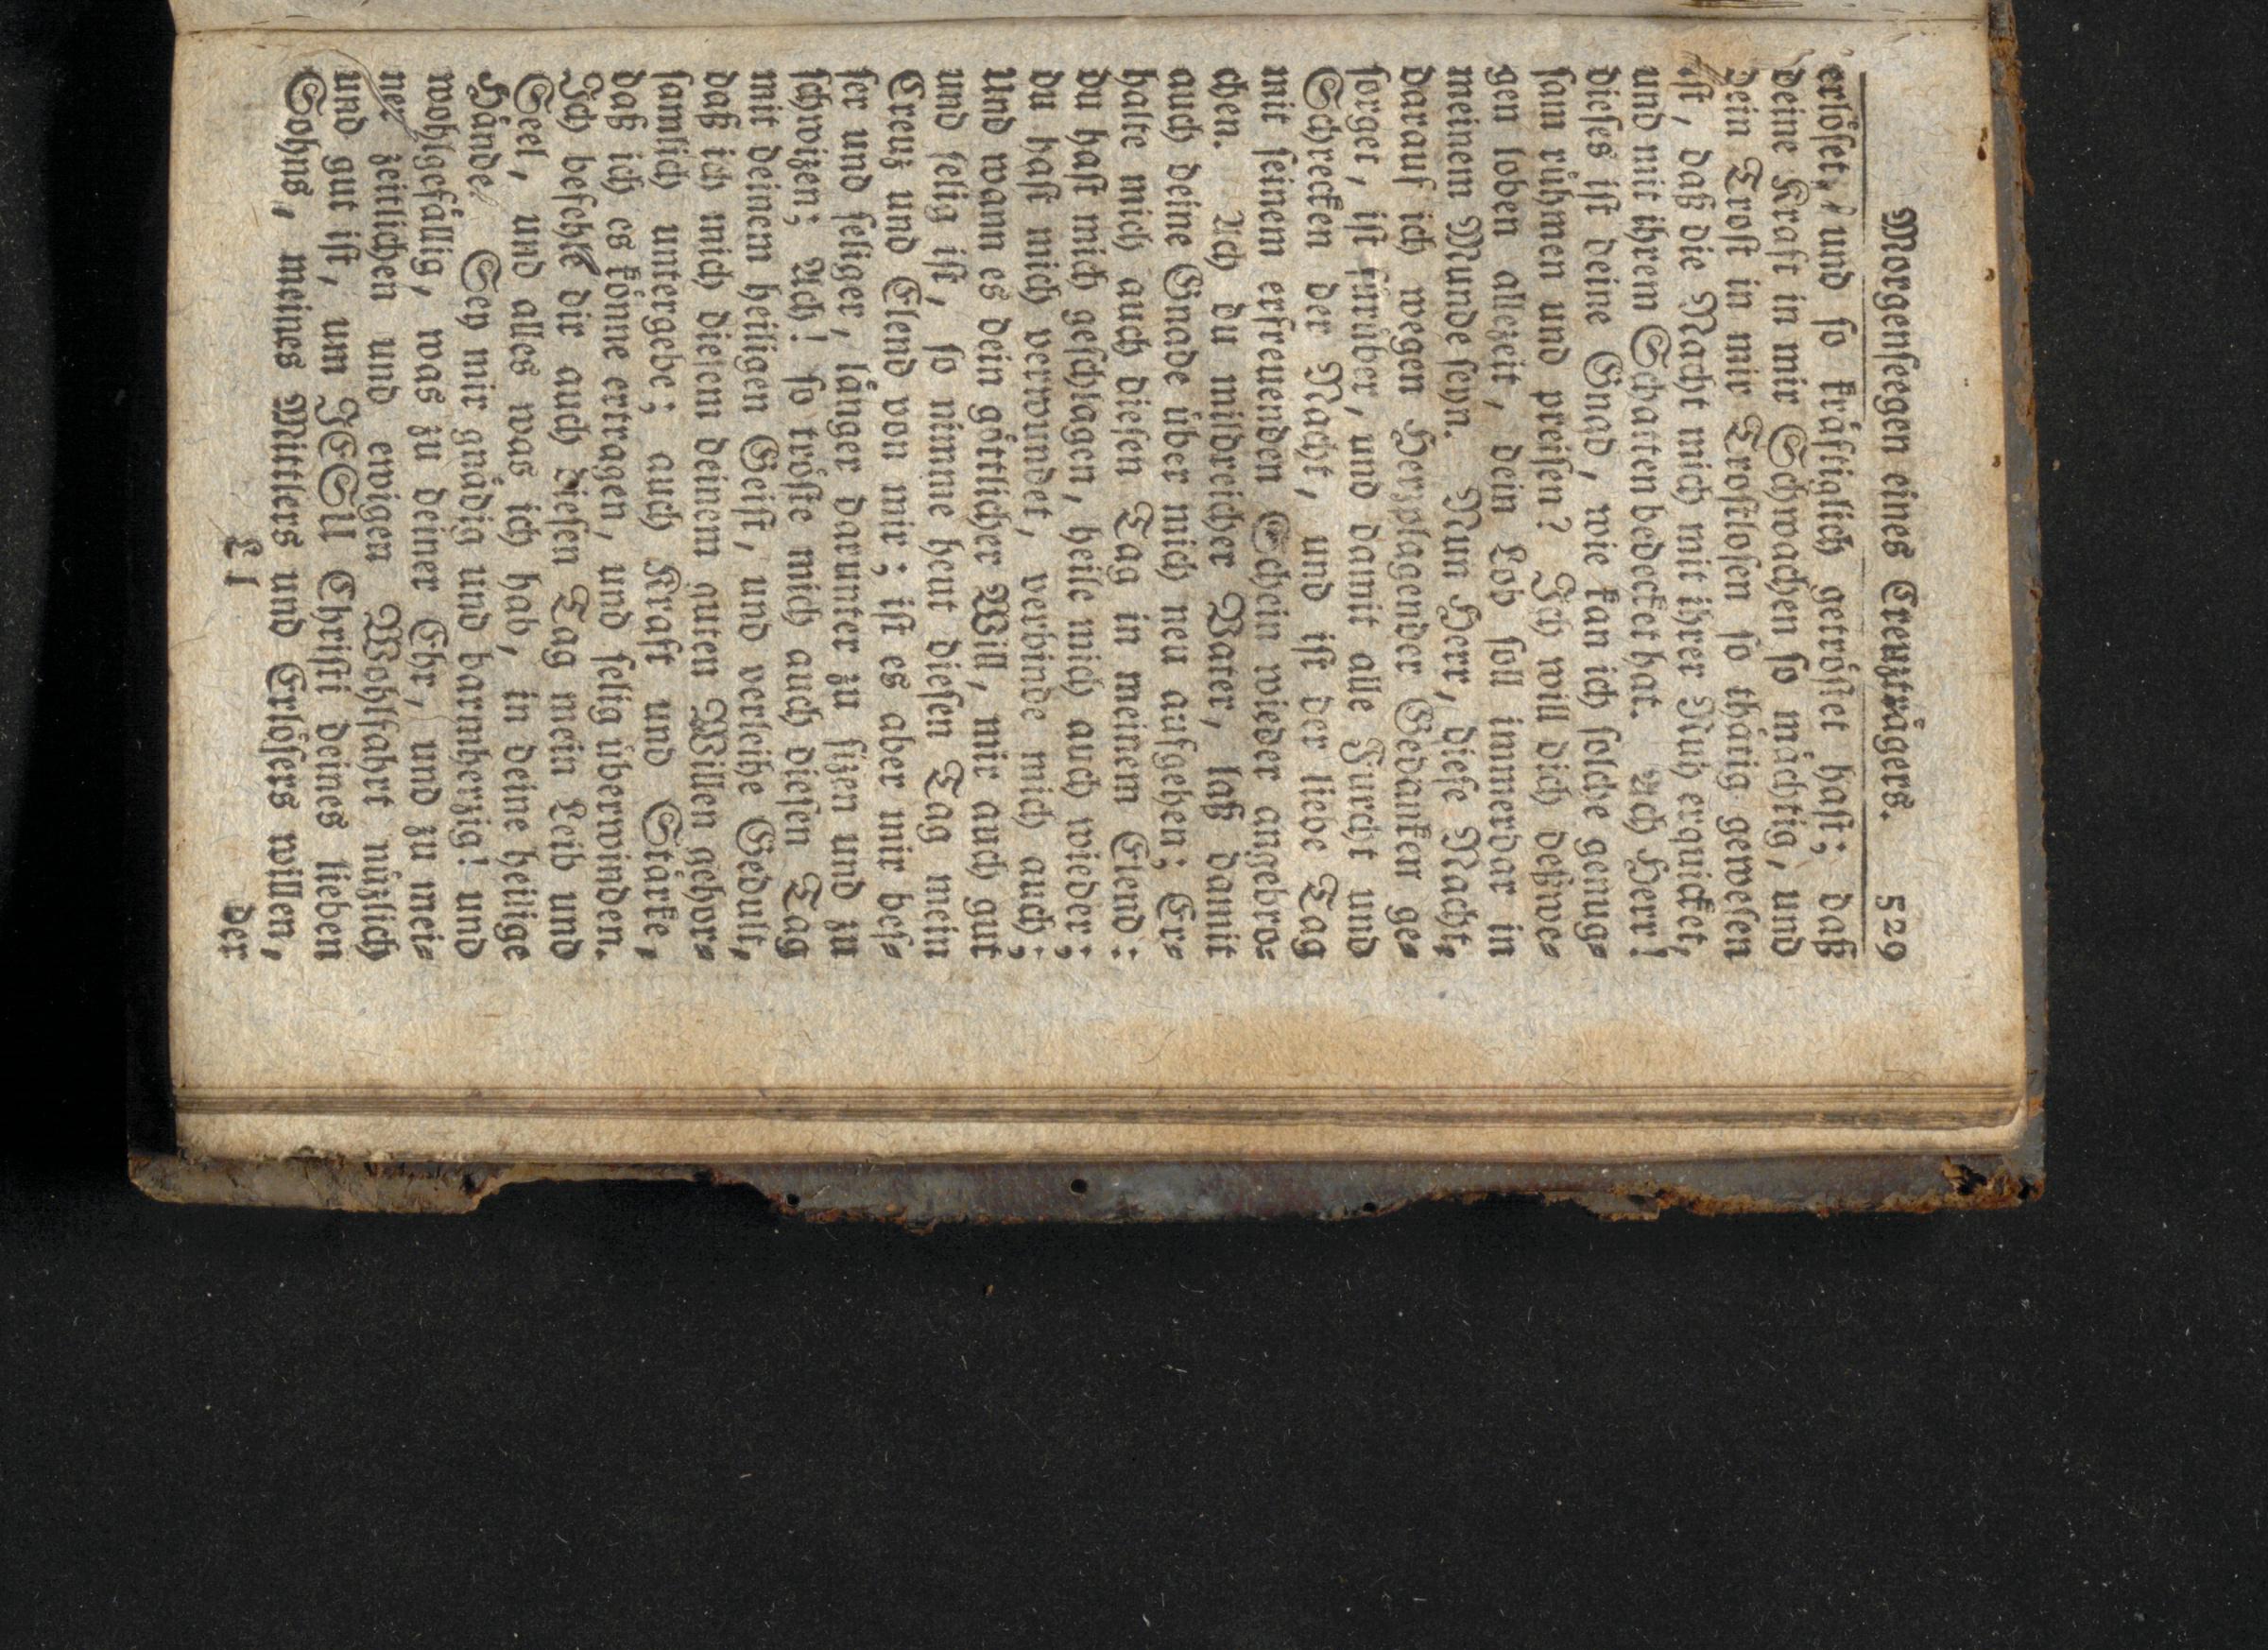 Morgenseegen eines Creutzträgers. 529
erlöset, und so kräftiglich getröstet hast; daß
deine Kraft in mir Schwachen so mächtig, und
dein Trost in mir Trostlosen so thätig gewesen
ist, daß die Nacht mich mit ihrer Ruh erquicket,
und mit ihrem Schatten bedecket hat. Ach Herr!
dieses ist deine Gnad, wie kan ich solche genug-
sam rühmen und preisen? Ich will dich deßwe-
gen loben allezeit, dein Lob soll immerdar in
meinem Munde seyn. Nun Herr, diese Nacht,
darauf ich wegen Herzplagender Gedanken ge-
sorget, ist fürüber, und damit alle Furcht und
Schrecken der Nacht, und ist der liebe Tag
mit seinem erfreuenden Schein wieder angebro-
chen. Ach du mildreicher Vater, laß damit
auch deine Gnade über mich neu aufgehen; Er-
halte mich auch diesen Tag in meinem Elend:
du hast mich geschlagen, heile mich auch wieder;
du hast mich verwundet, verbinde mich auch;
Und wann es dein göttlicher Will, mir auch gut
und selig ist, so nimme heut diesen Tag mein
Creuz und Elend von mir; ist es aber mir bes-
ser und seliger, länger darunter zu sizen und zu
schwizen; Ach! so tröste mich auch diesen Tag
mit deinem heiligen Geist, und verleihe Gedult,
daß ich mich diesem deinem guten Willen gehor-
samlich untergebe; auch Kraft und Stärke,
daß ich es könne ertragen, und selig überwinden.
Ich befehle dir auch diesen Tag mein Leib und
Seel, und alles was ich hab, in deine heilige
Hände. Sey mir gnädig und barmherzig! und
wohlgefällig, was zu deiner Ehr, und zu mei-
ner zeitlichen und ewigen Wohlfahrt nüzlich
und gut ist, um JESU Christi deines lieben
Sohns, meines Mittlers und Erlösers willen,
Ll der